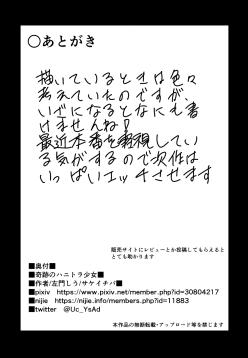 ○あとがき
描いているときは色々
考えていたのですが、
いざになるとなにも書
けませんね!
最近本番を軽視してい
る気がするので次作は
いっぱいエッチさせます
販売サイトにレビューとか投稿してもらえると
とても助かります
■奥付■
■奇跡のハニトラ少女■
■作者/左門しう/サケイチバ■
■pixiv https://www.pixiv.net/member.php?id=30804217
■nijie https://nijie.info/members.php?id=11883
■twitter @Uc_YsAd
本作品の無断転載・アップロード等を禁じます